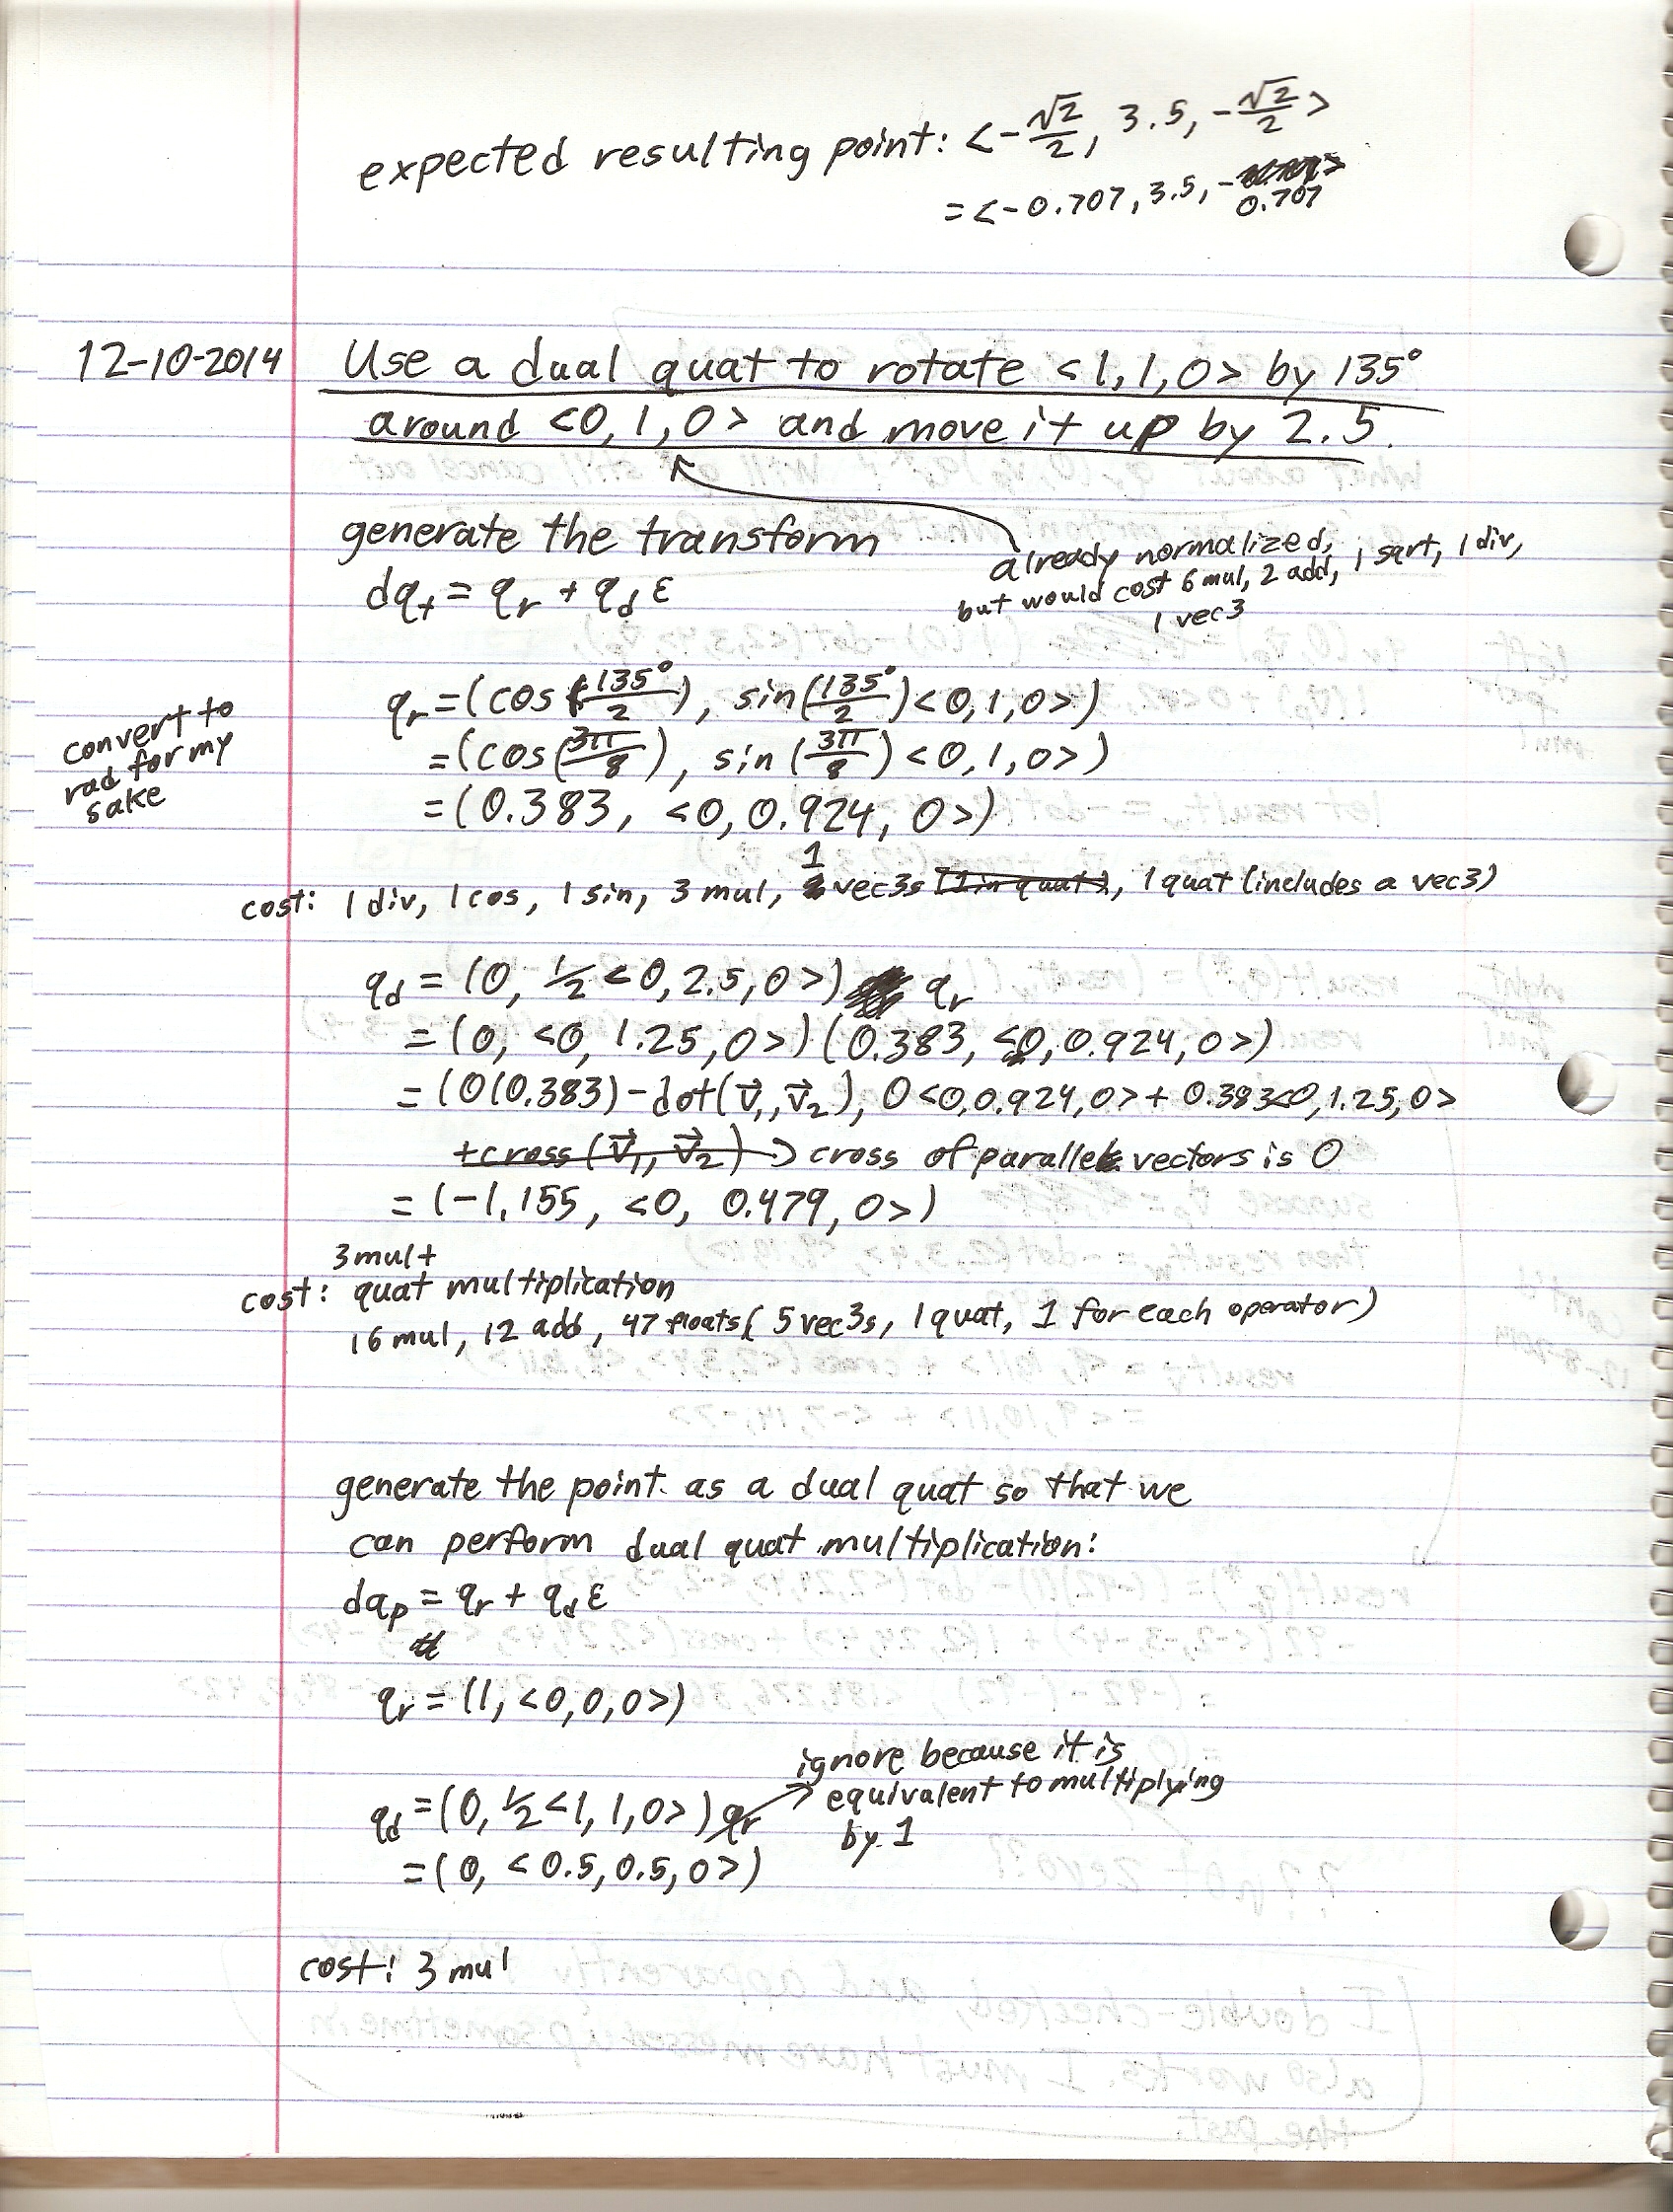 expected resulting point: <-√2/2, 3.5, -√2/2>
= <-0.707, 3.5, -0.707
12-10-2014 Use a dual quat to rotate <1,1,0> by 135°
around <0,1,0> and move it up by 2.5.
generate the transform
already normalized,
but would cost 6 mul, 2 add, 1 sqrt, 1 div,
1 vec3
dq_t = q_r + q_d ε
convert to
rad for my
sake
q_r = (cos(135°/2), sin(135°/2)<0,1,0>)
= (cos(3π/8), sin(3π/8)<0,1,0>)
= (0.383, <0, 0.924, 0>)
cost: 1 div, 1 cos, 1 sin, 3 mul, 1 vec3s (1 in quat), 1 quat (includes a vec3)
q_d = (0, 1/2<0,2.5,0>) q_r
= (0, <0, 1.25, 0>)(0.383, <0, 0.924, 0>)
= (0(0.383) - dot(v⃗₁, v⃗₂), 0<0,0.924,0> + 0.383<0,1.25,0>
+cross(v⃗₁, v⃗₂)) cross of parallel vectors is 0
= (-1.155, <0, 0.479, 0>)
3 mul +
cost: quat multiplication
16 mul, 12 add, 47 floats( 5 vec3s, 1 quat, 1 for each operator)
generate the point as a dual quat so that we
can perform dual quat multiplication:
dq_p = q_r + q_d ε
q_r = (1, <0,0,0>)
ignore because it is
equivalent to multiplying
by 1
q_d = (0, 1/2<1,1,0>) q_r
= (0, <0.5, 0.5, 0>)
cost: 3 mul